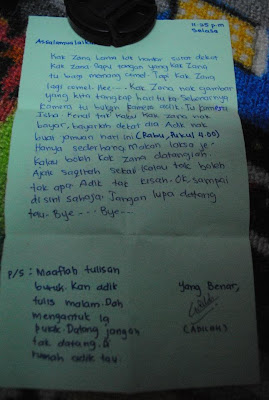 11.35 p.m
Selasa
Assalamualaikum
Kak Zana Lama tak hantar surat dekat
Kak Zana. Sapu tangan yang Kak Zana
tu bagi memang comel. Tapi Kak Zana
lagi comel. Hee--- Kak Zana nak gambar
yang kita tangkap hari tu ta. Sebenarnya
kamera tu bukan kamera adik. Tu kamera
Kalau Kak Zana nak
bayar, bayarlah dekat dia. Adik nak
buat jamuan hari ini (Rabu, Pukul 4.00)
Hanya sederhana. Makan laksa je.
Kalau boleh Kak Zana datanglah.
Ajak sekali. Kalau tak boleh
tak apa. Adik tak kisah. OK, sampai
di sini sahaja. Jangan lupa datang
tau. Bye --- Bye---
P/S : Maaflah tulisan
buruk. Kan adik
tulis malam. Dah
mengantuk la
pulak. Datang jangan
tak datang.
rumah adik tau.
Yang Benar,